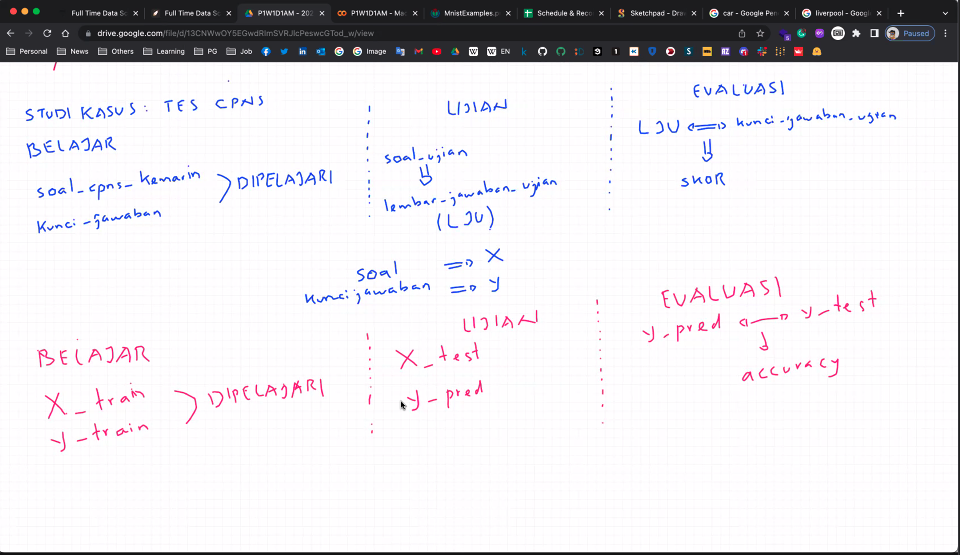 Full Time Data S
Full Time Data S
P1W1D1AM - 202
P1W1D1AM - Ma
MnistExamples.p
Schedule & Reco
Sketchpad - Dra
car - Google Pen
liverpool - Goog
drive.google.com/file/d/13CNWwOY5EGwdRlmSVRJlcPeswcGTod_w/view
Paused
Personal
News
Others
Learning
PG
Job
Image
STUDI KASUS: TES CPNS
BELAJAR
soal_cpns_kemarin
kunci-jawaban
DIPELAJARI
UJIAN
soal_ujian
lembar_jawaban_ujian
(LJU)
EVALUASI
LJU kunci-jawaban_ujian
SKOR
soal ⇒ X
kuncijawaban ⇒ y
BELAJAR
X_train
y_train
DIPELAJARI
UJIAN
X_test
y_pred
EVALUASI
y_pred y_test
accuracy